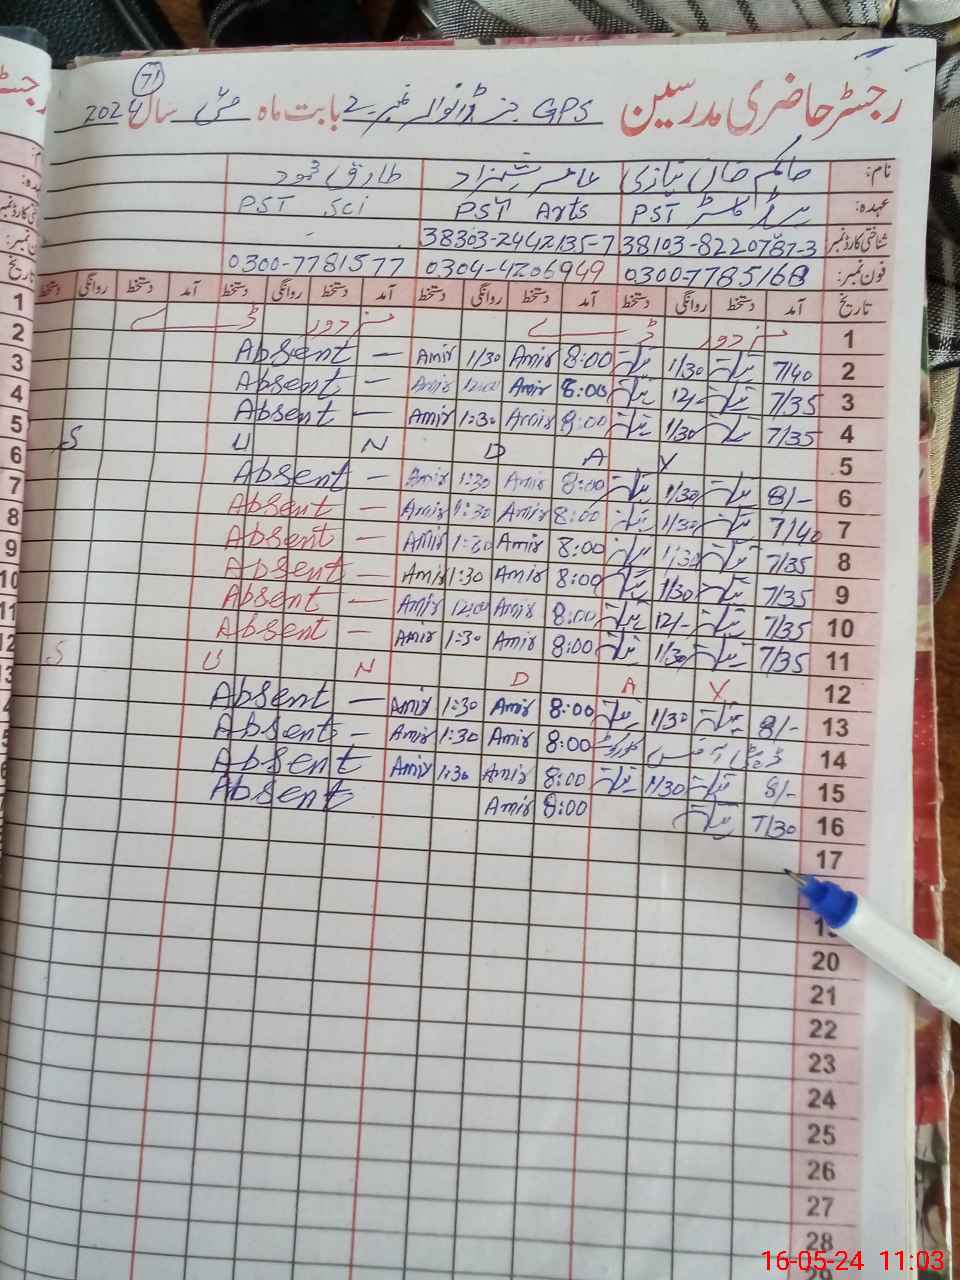 رجسٹر حاضری مدرسین GPS نمبر 2 بابت ماہ مئی سال 2024
71
نام: حاکم خان نیازی عامر شہزاد طارق محمود
عہدہ: ہیڈ ماسٹر PST PST Arts PST Sci
شناختی کارڈ نمبر 38103-8220787-3 38303-2442135-7
فون نمبر: 0300-7785168 0304-4206949 0300-7781577
تاریخ آمد دستخط روانگی دستخط آمد دستخط روانگی دستخط آمد دستخط روانگی دستخط آمد دستخط روانگی دستخط
1 مزدور ڈے مزدور ڈے
2 7/40 1/30 8:00 Amir 1/30 Amir — Absent
3 7/35 12/- 8:00 Amir 12:00 Amir — Absent
4 7/35 1/30 8:00 Amir 1:30 Amir — Absent
5 S U N D A Y
6 8/- 1/30 8:00 Amir 1:30 Amir — Absent
7 7/40 1/30 8:00 Amir 1:30 Amir — Absent
8 7/35 1/30 8:00 Amir 1:30 Amir — Absent
9 7/35 1/30 8:00 Amir 1:30 Amir — Absent
10 7/35 12/- 8:00 Amir 12:00 Amir — Absent
11 7/35 1/30 8:00 Amir 1:30 Amir — Absent
12 S U N D A Y
13 8/- 1/30 8:00 Amir 1:30 Amir — Absent
14 8:00 Amir 1:30 Amir — Absent
15 8/- 1/30 8:00 Amir 1:30 Amir Absent
16 7/30 8:00 Amir Absent
17
19
20
21
22
23
24
25
26
27
28
16-05-24 11:03